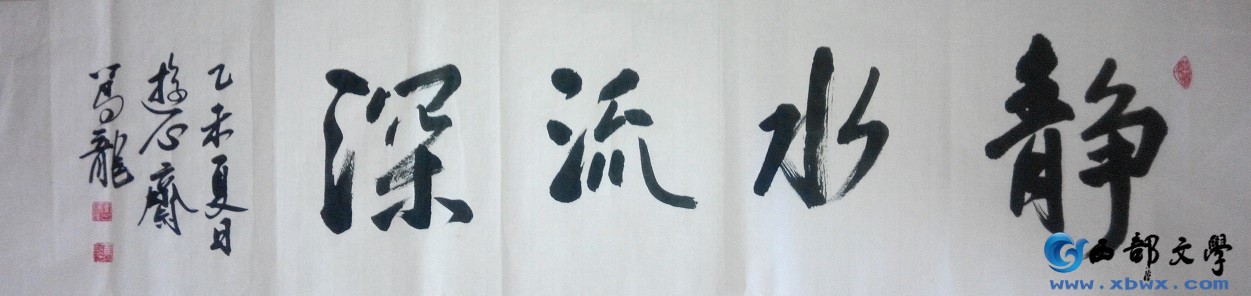 静水流深
乙未夏日
游心斋
马龙
西部文學
www.xbwx.com